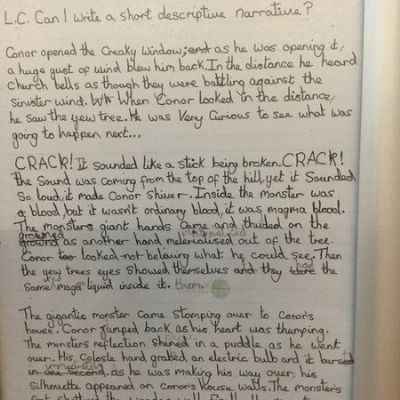 L.C. Can I write a short descriptive narrative?
Conor opened the Creaky window; and as he was opening it,
a huge gust of wind blew him back. In the distance he heard
Church bells as though they were battling against the
sinister wind. Wh When Conor looked in the distance,
he saw the yew tree. He was Very Curious to see what was
going to happen next...
CRACK! It sounded like a stick being broken. CRACK!
the sound was coming from the top of the hill, yet it sounded
So loud, it made Conor shiver. Inside the monster was
a blood, but it wasn't ordinary blood, it was magma blood.
The monsters giant hands came and thuded on the
ground as another hand materialised out of the tree.
Conor too looked-not belaing what he could see. Then
the yew trees eyes showed themselves and they were the
Same maga liquid inside it. them.
The gigantic monster came stomping over to conor's
house. Conor jumped back as his heart was thumping.
The monsters reflection shined in a puddle as he went
over. His Colosle hand grabed an electric bulb and it bursed
immediately
in one second. as he was making his way over, his
Silhouette appeared on conor's house walls. The monster's